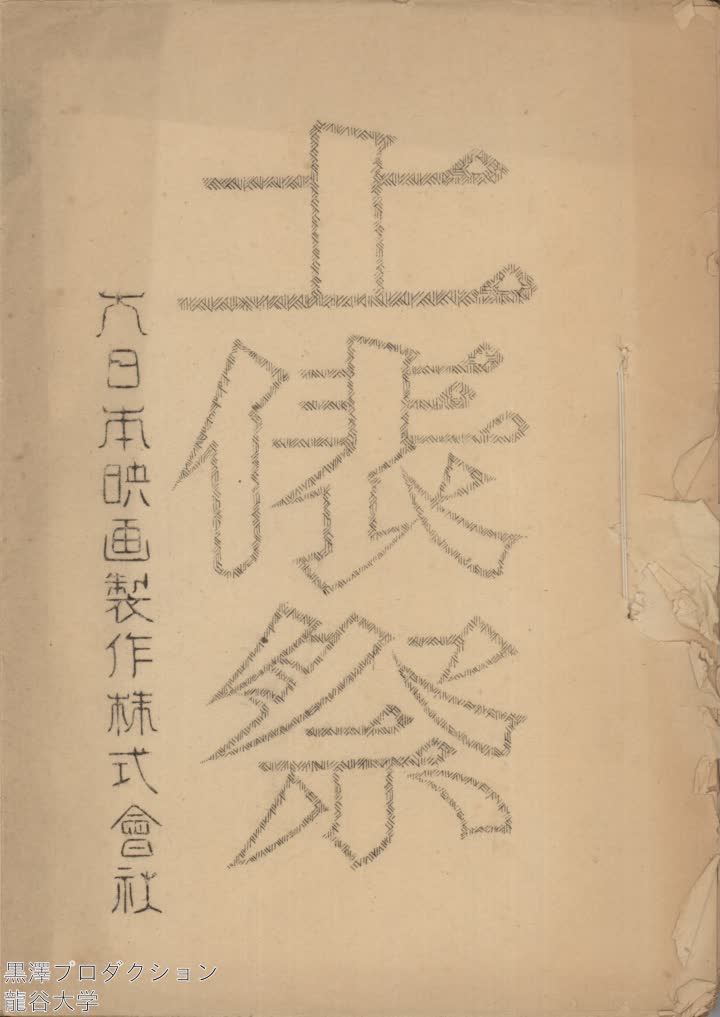 土俵祭
大日本映画製作株式會社
黒澤プロダクション
龍谷大学